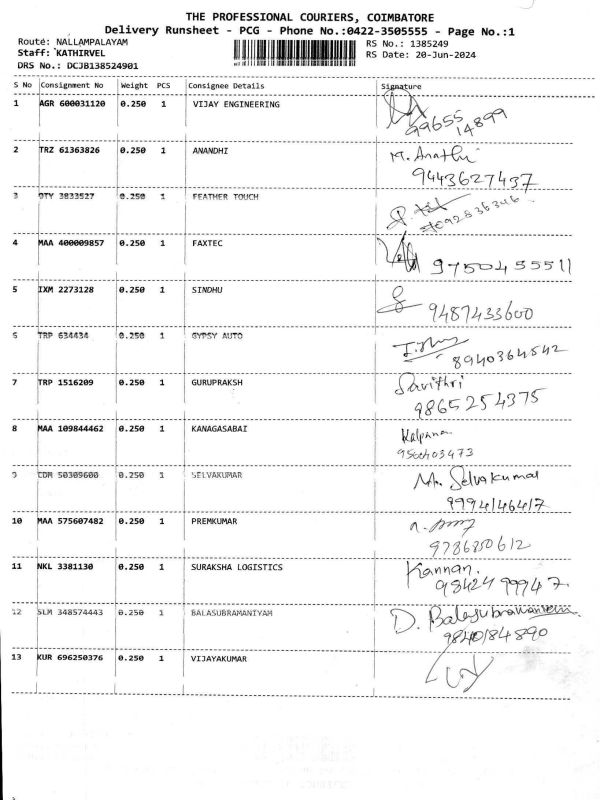 THE PROFESSIONAL COURIERS, COIMBATORE
Delivery Runsheet - PCG - Phone No.:0422-3505555 - Page No.:1
Route: NALLAMPALAYAM RS No.: 1385249
Staff: KATHIRVEL RS Date: 20-Jun-2024
DRS No.: DCJB138524901
S No Consignment No Weight PCS Consignee Details Signature
1 AGR 600031120 0.250 1 VIJAY ENGINEERING
99655
14899
2 TRZ 61363826 0.250 1 ANANDHI M. Anathi
9443627437
3 OTY 3833527 0.250 1 FEATHER TOUCH
4 MAA 400009857 0.250 1 FAXTEC 9750455511
5 IXM 2273128 0.250 1 SINDHU
9487433600
6 TRP 634434 0.250 1 GYPSY AUTO
8940364542
7 TRP 1516209 0.250 1 GURUPRAKSH Savithri
9865254375
8 MAA 109844462 0.250 1 KANAGASABAI Kalpana
9500403473
9 CDM 50309600 0.250 1 SELVAKUMAR M. Selvakumar
9994146417
10 MAA 575607482 0.250 1 PREMKUMAR
9786850612
11 NKL 3381130 0.250 1 SURAKSHA LOGISTICS Kannan.
98424 99947.
12 SLM 348574443 0.250 1 BALASUBRAMANIYAM D. Balasubramaniyam
9840184890
13 KUR 696250376 0.250 1 VIJAYAKUMAR